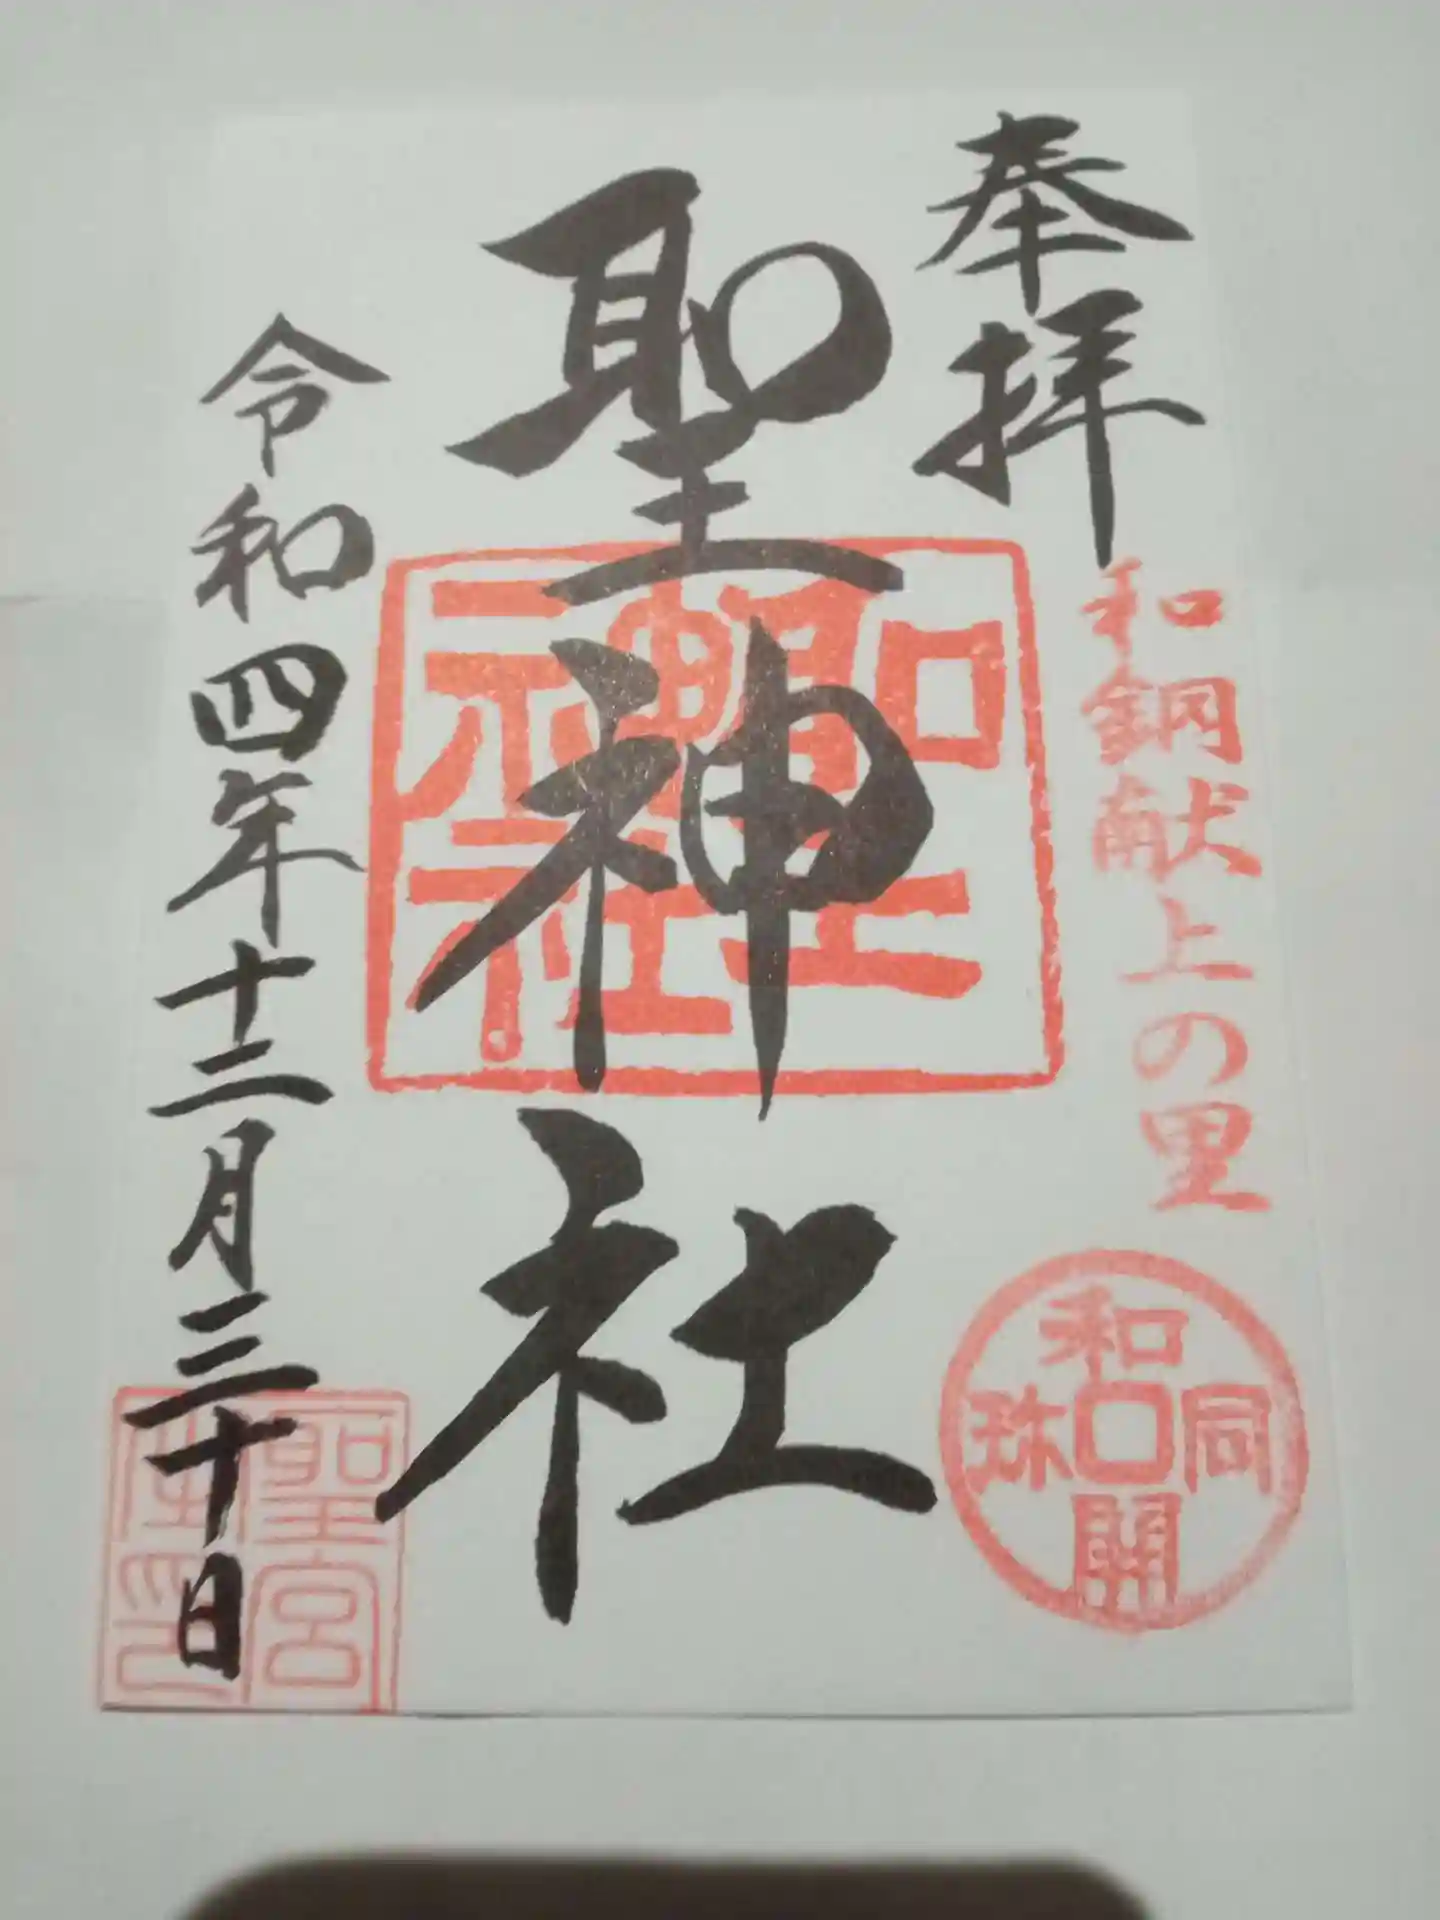 奉拝
和銅献上の里
和同開珎
聖神社
聖神社
令和四年十二月三十日
聖宮